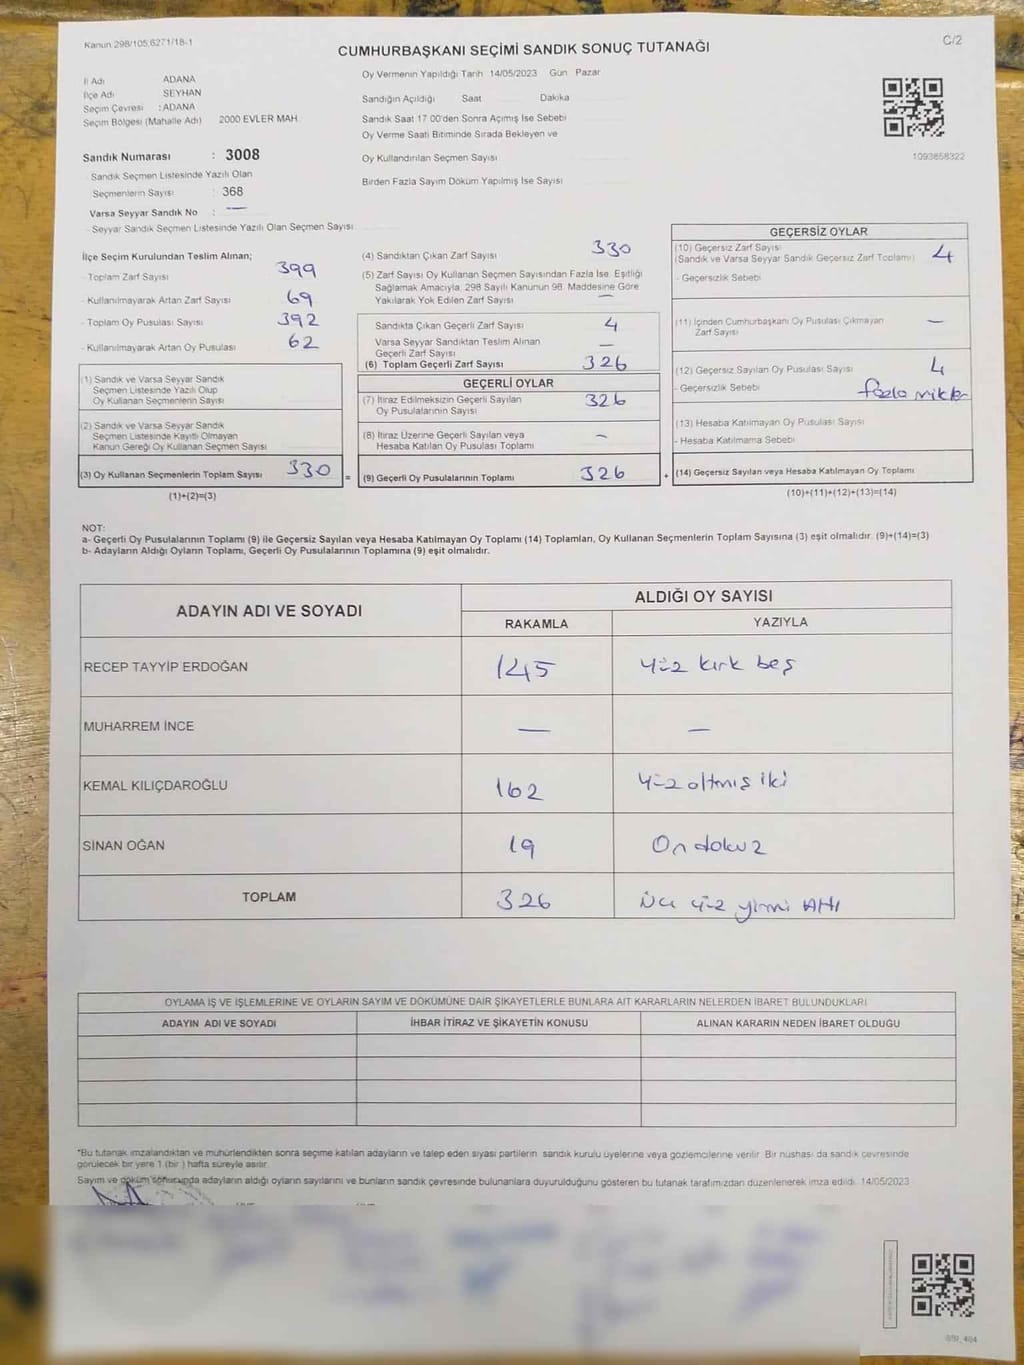 Kanun 298/105,6271/18-1
C/2
CUMHURBAŞKANI SEÇİMİ SANDIK SONUÇ TUTANAĞI
İl Adı ADANA
İlçe Adı SEYHAN
Seçim Çevresi : ADANA
Seçim Bölgesi (Mahalle Adı) 2000 EVLER MAH.
Sandık Numarası : 3008
- Sandık Seçmen Listesinde Yazılı Olan
Seçmenlerin Sayısı : 368
Varsa Seyyar Sandık No : —
- Seyyar Sandık Seçmen Listesinde Yazılı Olan Seçmen Sayısı
Oy Vermenin Yapıldığı Tarih 14/05/2023 Gün Pazar
Sandığın Açıldığı Saat Dakika
Sandık Saat 17:00'den Sonra Açımış İse Sebebi
Oy Verme Saati Bitiminde Sırada Bekleyen ve
Oy Kullandırılan Seçmen Sayısı
Birden Fazla Sayım Döküm Yapılmış İse Sayısı
1093658322
İlçe Seçim Kurulundan Teslim Alınan;
- Toplam Zarf Sayısı 399
- Kullanılmayarak Artan Zarf Sayısı 69
- Toplam Oy Pusulası Sayısı 392
- Kullanılmayarak Artan Oy Pusulası 62
(1) Sandık ve Varsa Seyyar Sandık
Seçmen Listesinde Yazılı Olup
Oy Kullanan Seçmenlerin Sayısı
(2) Sandık ve Varsa Seyyar Sandık
Seçmen Listesinde Kayıtlı Olmayan
Kanun Gereği Oy Kullanan Seçmen Sayısı
(3) Oy Kullanan Seçmenlerin Toplam Sayısı 330
(1)+(2)=(3)
(4) Sandıktan Çıkan Zarf Sayısı 330
(5) Zarf Sayısı Oy Kullanan Seçmen Sayısından Fazla İse, Eşitliği
Sağlamak Amacıyla, 298 Sayılı Kanunun 98. Maddesine Göre
Yakılarak Yok Edilen Zarf Sayısı —
Sandıkta Çıkan Geçerli Zarf Sayısı 4
Varsa Seyyar Sandıktan Teslim Alınan
Geçerli Zarf Sayısı —
(6) Toplam Geçerli Zarf Sayısı 326
GEÇERLİ OYLAR
(7) İtiraz Edilmeksizin Geçerli Sayılan
Oy Pusulalarının Sayısı 326
(8) İtiraz Üzerine Geçerli Sayılan veya
Hesaba Katılan Oy Pusulası Toplamı —
= (9) Geçerli Oy Pusulalarının Toplamı 326 +
GEÇERSİZ OYLAR
(10) Geçersiz Zarf Sayısı
(Sandık ve Varsa Seyyar Sandık Geçersiz Zarf Toplamı) 4
- Geçersizlik Sebebi
(11) İçinden Cumhurbaşkanı Oy Pusulası Çıkmayan
Zarf Sayısı —
(12) Geçersiz Sayılan Oy Pusulası Sayısı 4
- Geçersizlik Sebebi fazla
(13) Hesaba Katılmayan Oy Pusulası Sayısı
- Hesaba Katılmama Sebebi
(14) Geçersiz Sayılan veya Hesaba Katılmayan Oy Toplamı
(10)+(11)+(12)+(13)=(14)
NOT:
a- Geçerli Oy Pusulalarının Toplamı (9) ile Geçersiz Sayılan veya Hesaba Katılmayan Oy Toplamı (14) Toplamları, Oy Kullanan Seçmenlerin Toplam Sayısına (3) eşit olmalıdır. (9)+(14)=(3)
b- Adayların Aldığı Oyların Toplamı, Geçerli Oy Pusulalarının Toplamına (9) eşit olmalıdır.
ADAYIN ADI VE SOYADI ALDIĞI OY SAYISI
RAKAMLA YAZIYLA
RECEP TAYYİP ERDOĞAN 145 Yüz kırk beş
MUHARREM İNCE — —
KEMAL KILIÇDAROĞLU 162 Yüz altmış iki
SİNAN OĞAN 19 On dokuz
TOPLAM 326 üç yüz yirmi Altı
OYLAMA İŞ VE İŞLEMLERİNE VE OYLARIN SAYIM VE DÖKÜMÜNE DAİR ŞİKAYETLERLE BUNLARA AİT KARARLARIN NELERDEN İBARET BULUNDUKLARI
ADAYIN ADI VE SOYADI İHBAR İTİRAZ VE ŞİKAYETİN KONUSU ALINAN KARARIN NEDEN İBARET OLDUĞU
*Bu tutanak imzalandıktan ve mühürlendikten sonra seçime katılan adayların ve talep eden siyasi partilerin sandık kurulu üyelerine veya gözlemcilerine verilir. Bir nüshası da sandık çevresinde
görülecek bir yere 1 (bir ) hafta süreyle asılır.
Sayım ve döküm sonucunda adayların aldığı oyların sayılarını ve bunların sandık çevresinde bulunanlara duyurulduğunu gösteren bu tutanak tarafımızdan düzenlenerek imza edildi. 14/05/2023